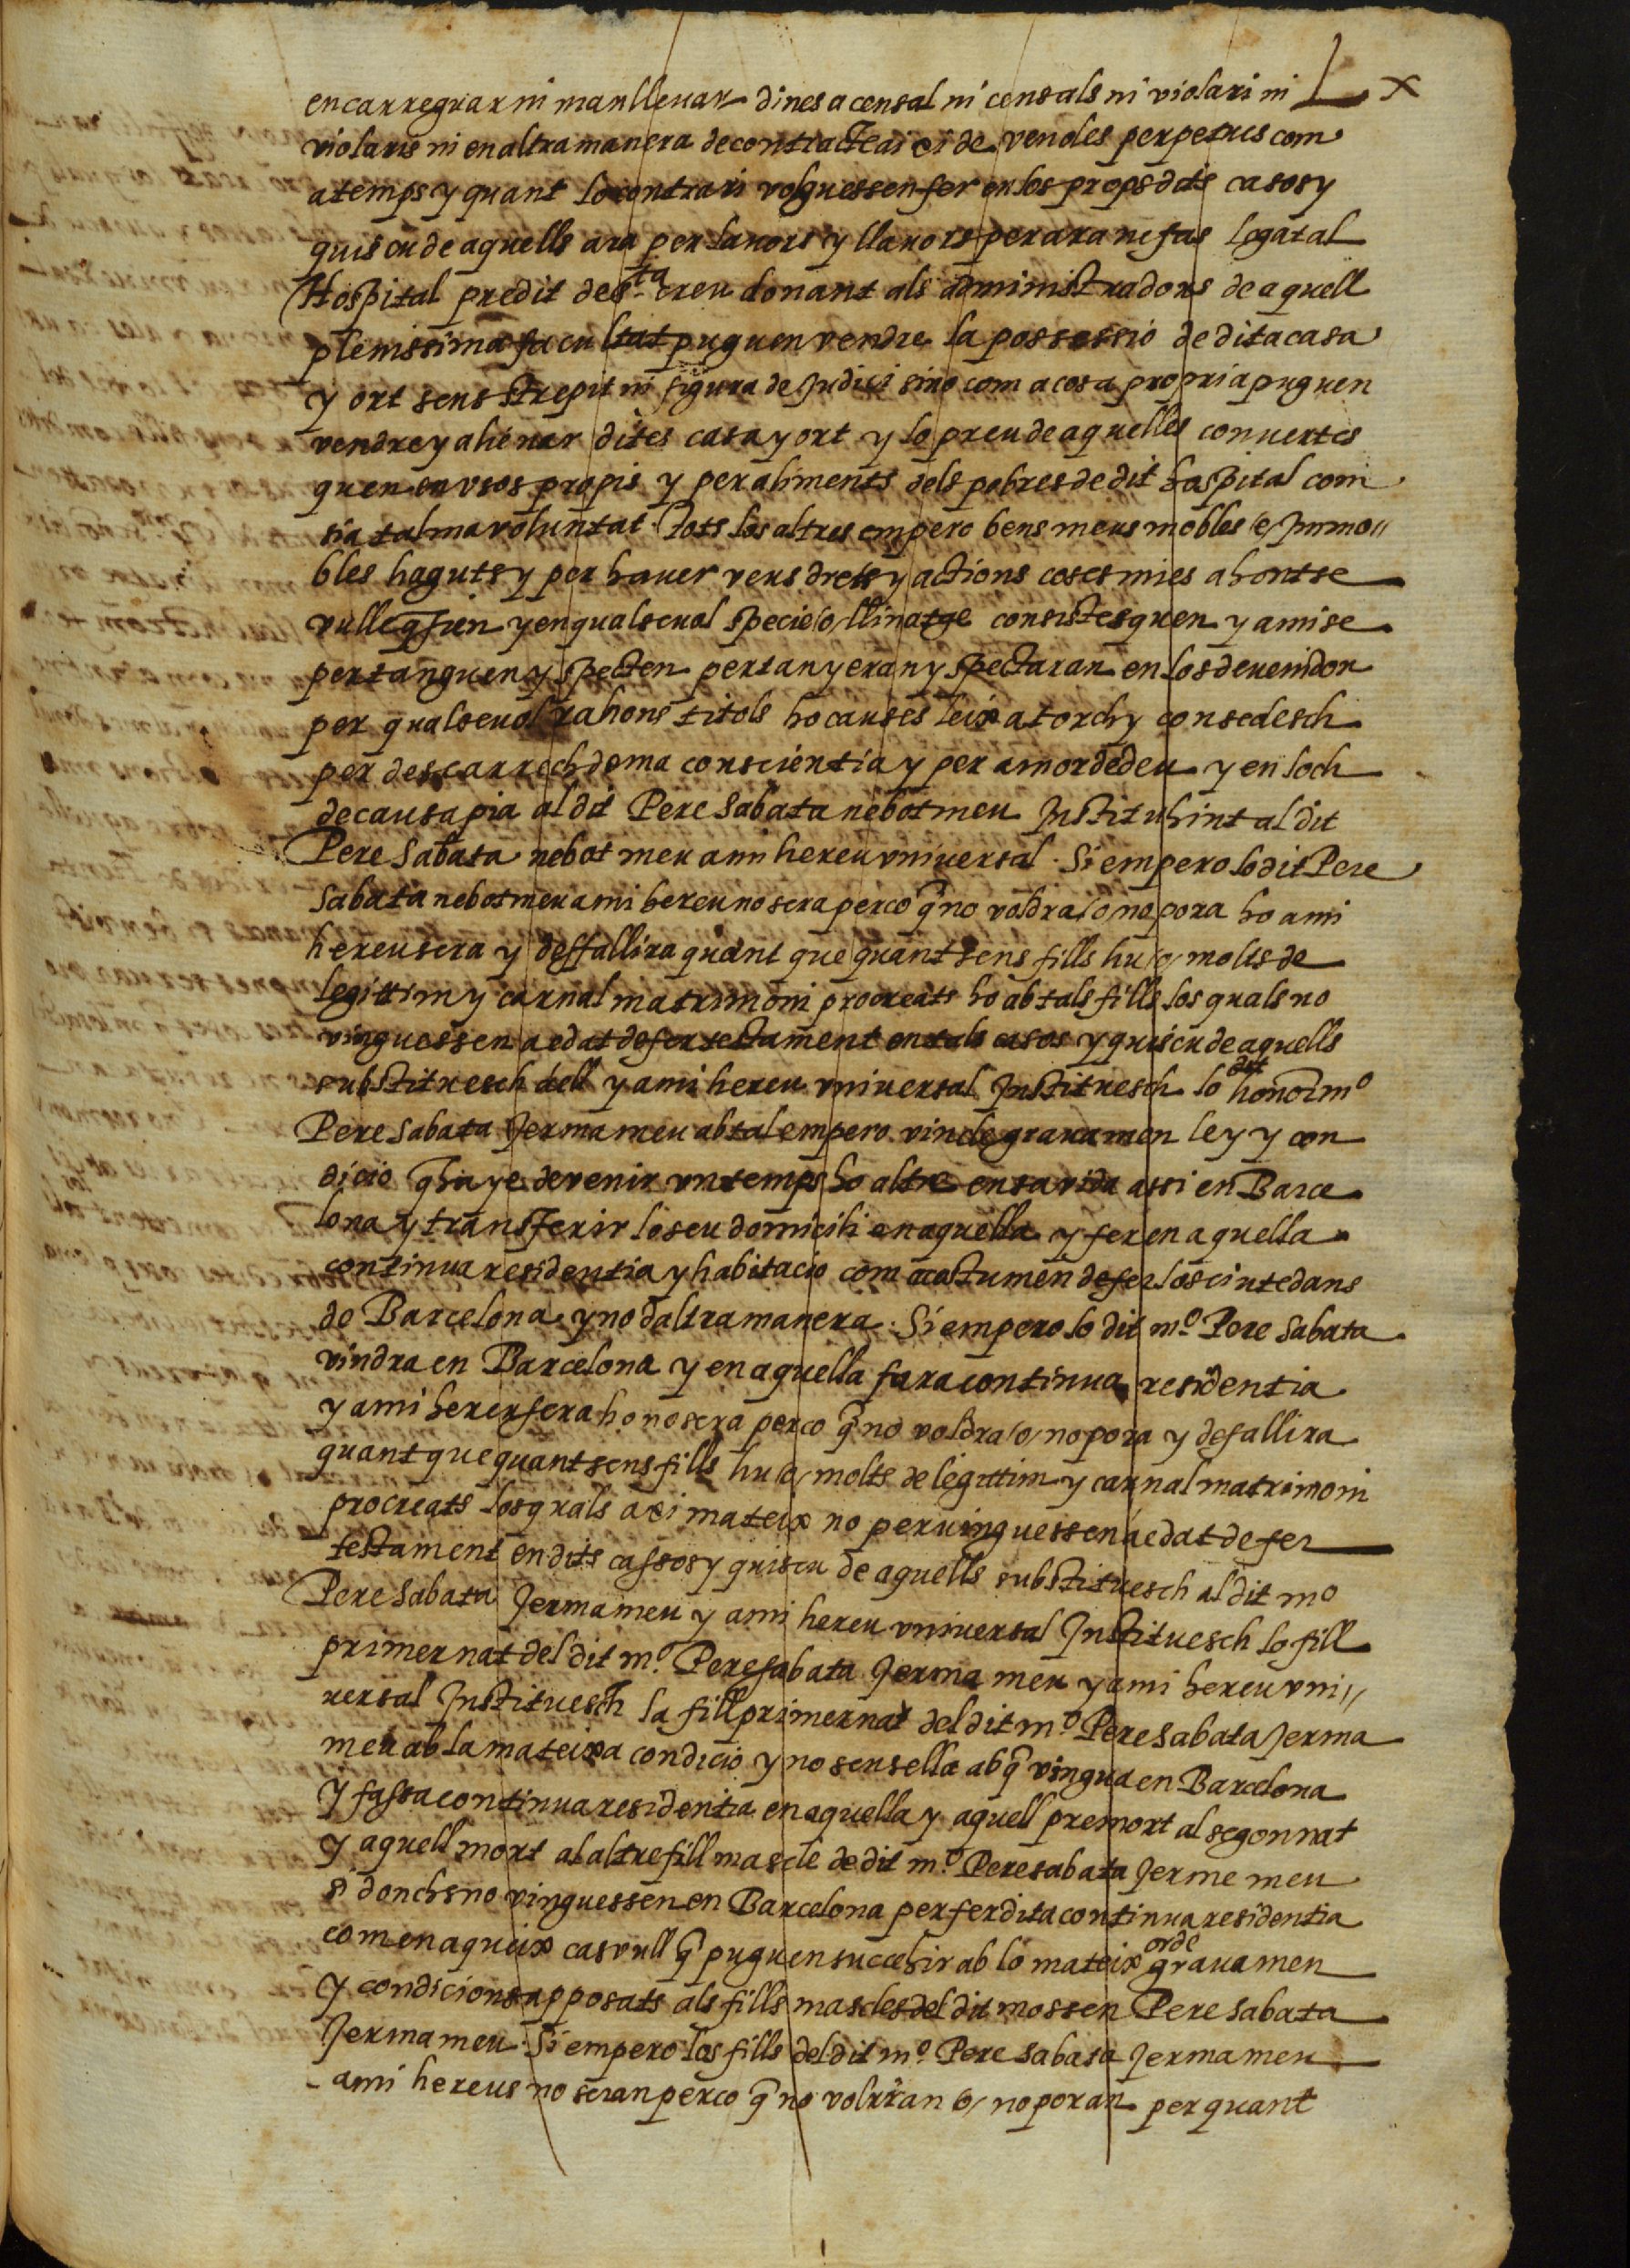 Lx
encarregar ni manllevar dines a censal ni censals ni violari ni
violaris ni en altra manera de contractear si de vendes perpetues com
a temps y quant lo contrari volguessen fer en los props dits casos y
quiscu de aquells ara per lavors y llavors per ara ne fas legat al
Hospital predit de s.ta creu donant als administradors de aquell
plenissima facultat puguen vendre la possessio de dita casa
y ort sens strepit ni figura de Judici sino com a cosa propria puguen
vendre y alienar dites casa y ort y lo preu de aquelles convertes
quen en vsos propis y per aliments dels pobres de dit hospital com
sia tal ma voluntat. Tots los altres empero bens meus mobles /e/ Jmmo//
bles haguts y per haver veus drets y actions coses mies ahont se
vulle q̄ sien y en qualseual specie /o/ llinatge consistesquen y a mi se
pertanguen y specten pertanyeran y spectaran en los devenidor
per qualsevol rahons titols ho causes leix atorch y consedesch
per descarrech de ma conscientia y per amor de deu y en loch
de causa pia al dit Pere Sabata nebot meu Jnstituhint al dit
Pere Sabata nebot meu a mi hereu vniversal. Si empero lo dit Pere
Sabata nebot meu a mi hereu no sera perco q̄ no voldra /o/ no pora ho a mi
hereu sera y deffallira quant que quant sens fills hu /o/ molts de
legittim y carnal matrimoni procreats ho ab tals fills los quals no
vinguessen a edat de fer testament en tals casos y quiscu de aquells
substituesch dell y a mi hereu vniversal Jnstituesch lo dit honor.m.o
Pere Sabata Jerma meu ab tal empero vincle gravamen ley y con
dicio q̄ haye de venir vn temps ho altre en sa vida assi en Barce
lona y transferir lo seu domicili en aquella y fer en aquella
continua residentia y habitacio com acostumen de fer los ciutedans
de Barcelona y no d altra manera. Si empero lo dit m.o Pere Sabata
vindra en Barcelona y en aquella fara continua residentia
y a mi hereu sera ho no sera perco q̄ no voldra /o/ no pora y defallira
quant que quant sens fills hu /o/ molts de legittim y carnal matrimoni
procreats los quals axi mateix no pervinguessen a edat de fer
testament en dits cassos y quiscu de aquells substituesch al dit mo
Pere Sabata Jerma meu y a mi hereu vniversal Jnstituesch lo fill
primer nat del dit m.o Pere Sabata Jerma meu y a mi hereu vni//
versal Jnstituesch la fill primer nat del dit m.o Pere Sabata Jerma
meu ab la mateixa condicio y no sens ella ab q̄ vingua en Barcelona
y fassa continua residentia en aquella y aquell premort al segon nat
y aquell mort al altre fill mascle de dit m.o Pere Sabata Jerme meu
si donchs no vinguessen en Barcelona per fer dita continua residentia
com en aqueix cas vull q̄ puguen succehir ab lo mateix orde gravamen
y condicions apposats als fills mascles del dit mossen Pere Sabata
Jerma meu. Si empero los fills del dit m.o Pere Sabata Jerma meu
a mi hereus no seran perco q̄ no volrran /o/ no poran per quant